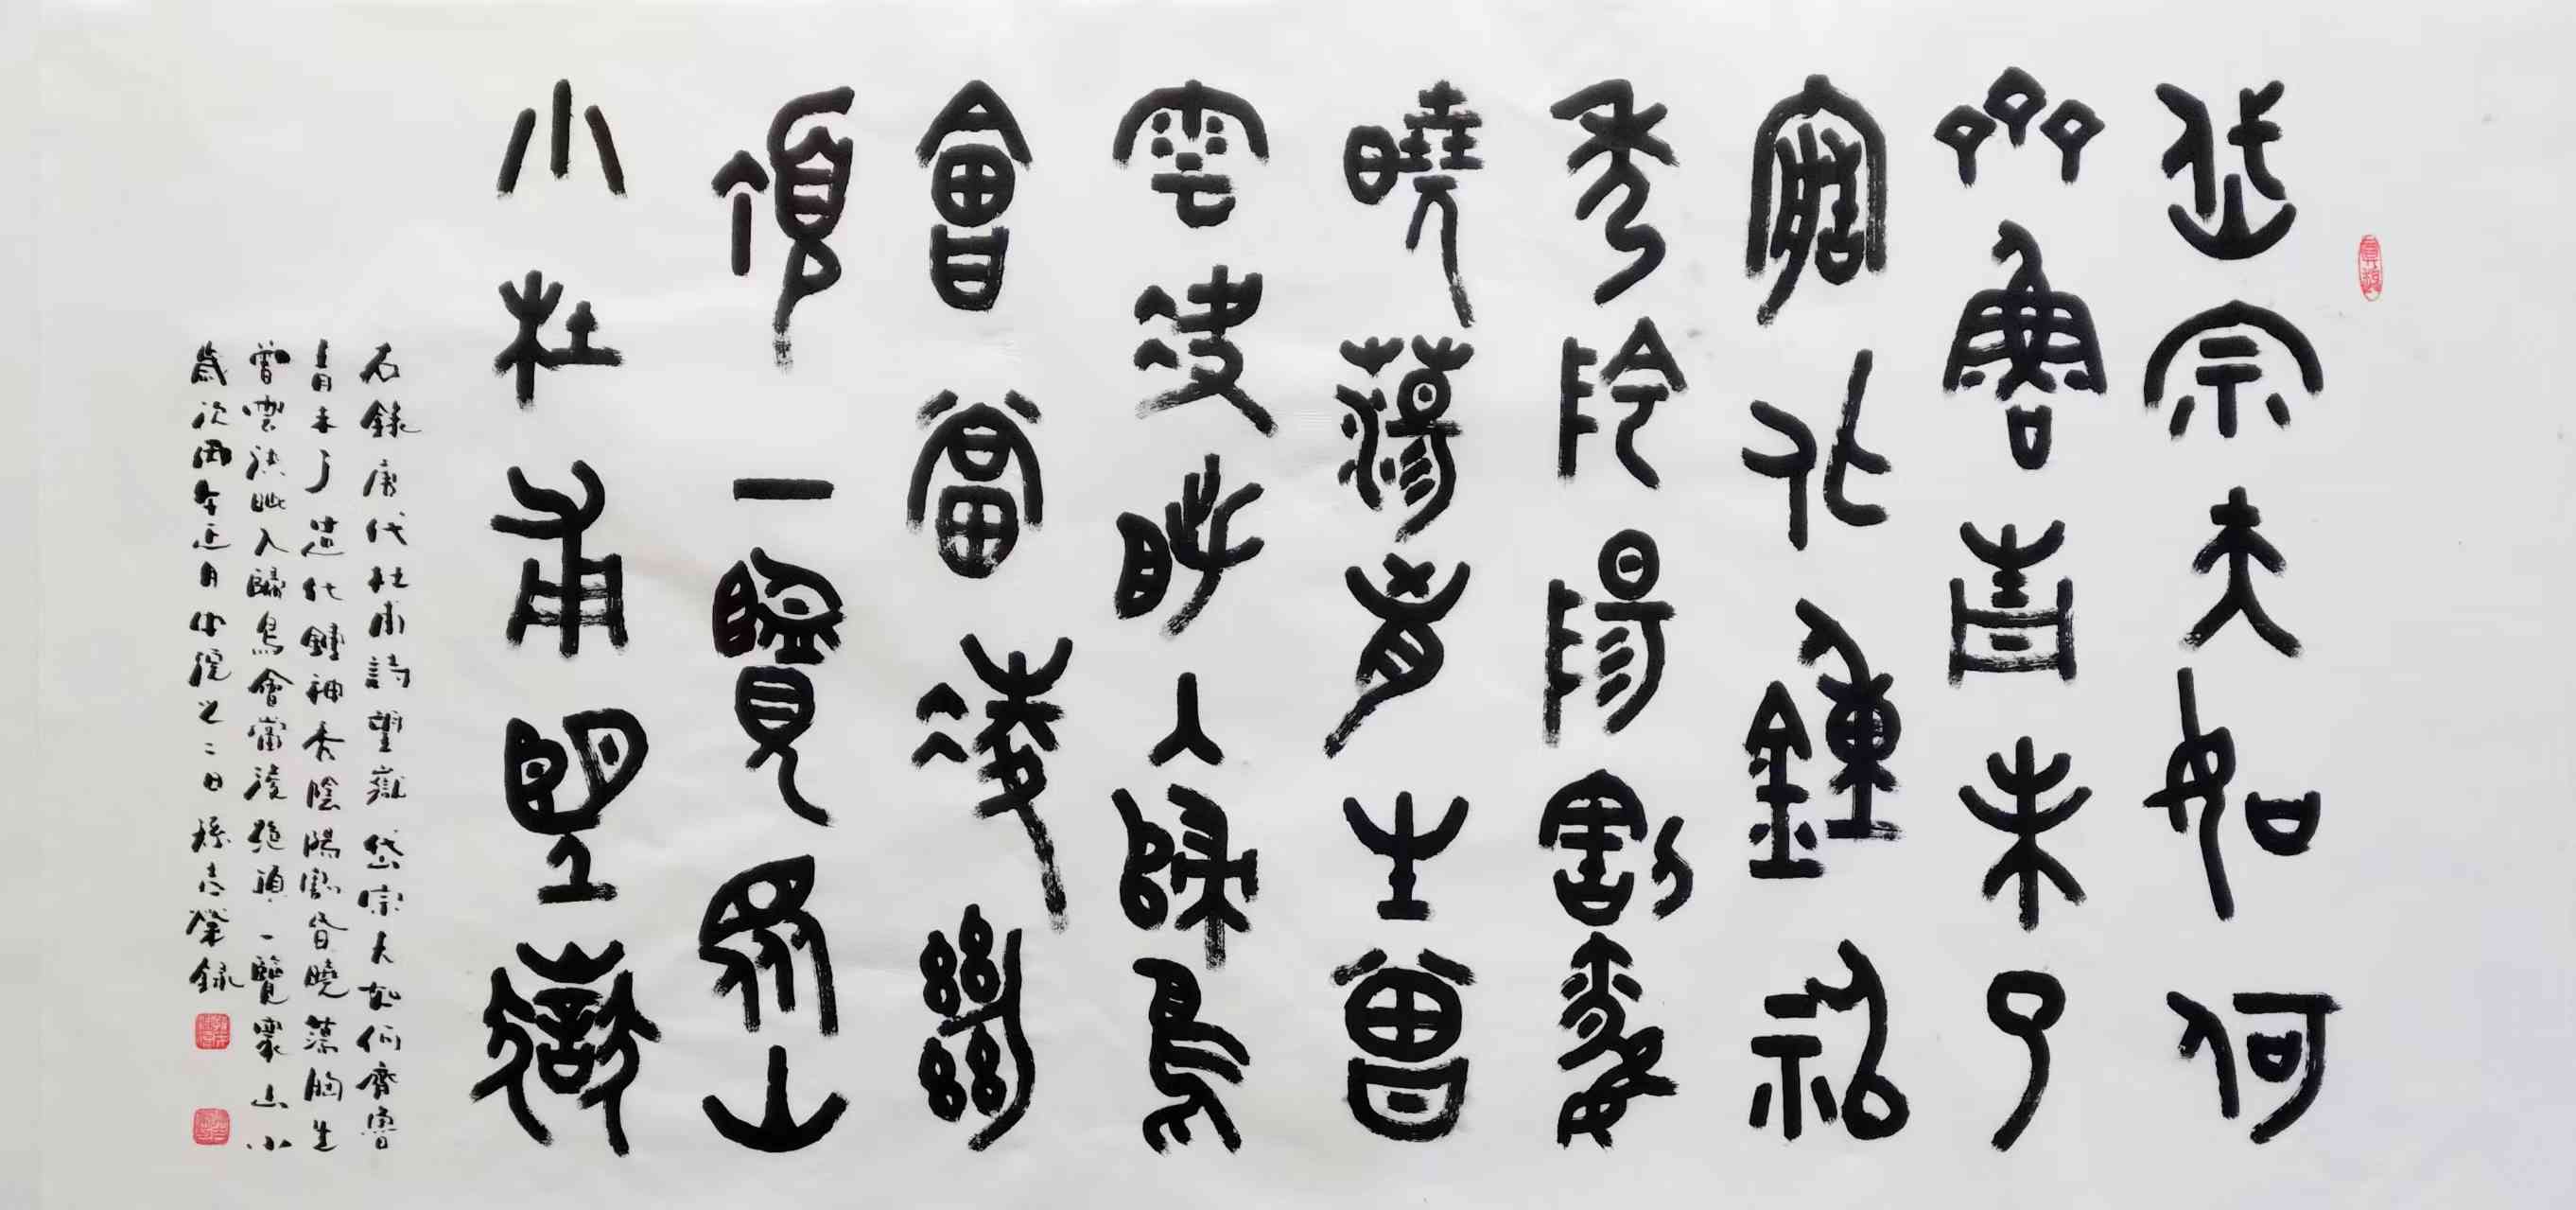 岱宗夫如何
齊魯青未了
造化鍾神
秀陰陽割昏
曉蕩胸生曾
雲決眥入歸鳥
會當淩絕
頂一覽眾山
小杜甫望嶽
右錄唐代杜甫詩望嶽岱宗夫如何齊魯
青未了造化鍾神秀陰陽割昏曉蕩胸生
曾雲決眥入歸鳥會當淩絕頂一覽眾山小
歲次丙午正月中浣之二日孫志榮錄